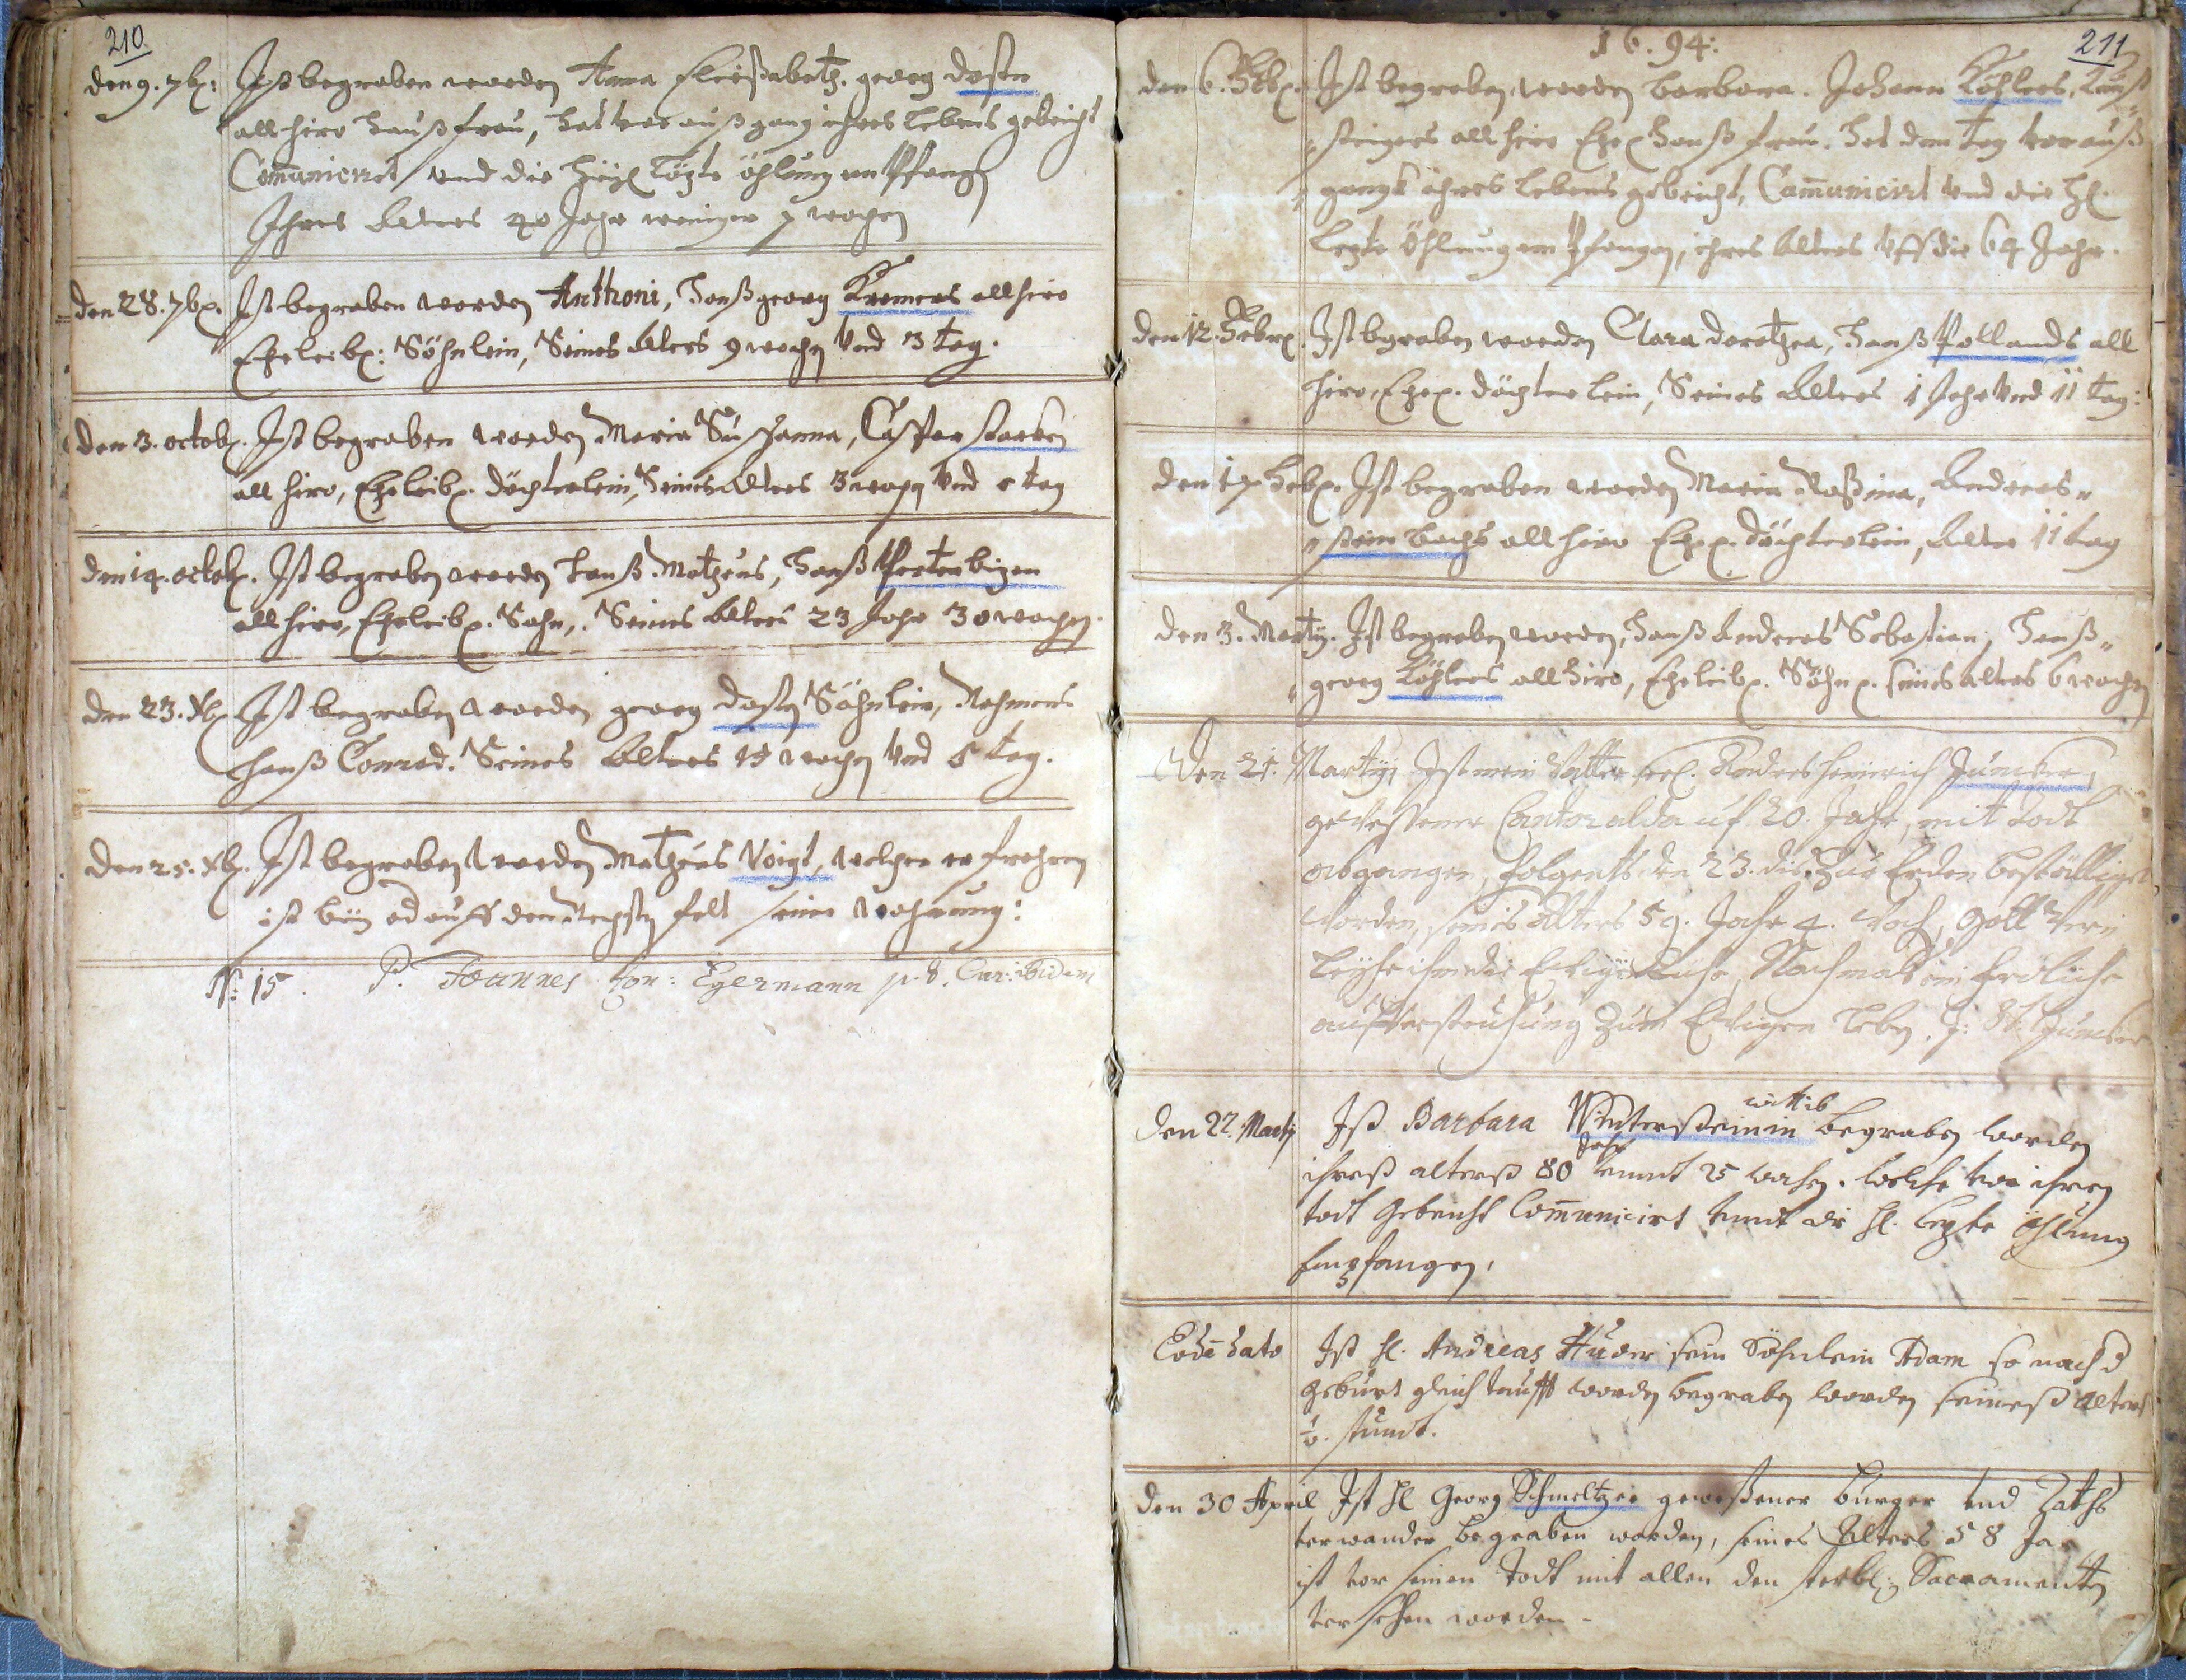 210.
den 9. 7br: Ist begraben worden Anna Elißabetha. georg dostn
allhiro Haußfrau, hat vor außgang ihres lebens gebeicht
Com̄uniciret vnd die heyl. lözte öhlung entpfangen
Ihres Alters 40 Jahr weniger 7 wochen
den 28. 7br. Ist begraben worden Anthoni, Hanß georg Kremers allhiro
Eheleibl: Söhnlein, Seines Alters 9 wochen vnd 3 tag.
den 3. octob. Ist begraben worden Maria Susanna, Casper starken
allhiro, Eheleibl. döchterlein, Seines Alters 3 woch vnd tag
den 14. octob. Ist begraben worden Hanß Matheus, Hanß
allhiro, Eheleibl. Sohn, Seines Alters 23 Jahr 30 wochen.
den 23. Xbr Ist begraben worden georg dosten Söhnlein, Nahmens
Hanß Conrad. Seines Alters 13 wochen vnd 5 tag.
den 25. Xb. Ist begraben worden Matheus Voigt, welcher erfrohren
ist auff den felt seine wohnung:
N: 15. P. Joannes Egermann p. t. Cur: ibidem
16.94:
211
den 6. Febr. Ist begraben worden barbara. Johann Köhlers,
allhiro Ehel. Hanßfrau. hat den tag vor auß
gangk ihres lebens gebeicht, Cam̄unicirt vnd die hl.
lezte Öhlung entpfangen, ihres Alters vff die 64 Jahr.
den 12. Febr. Ist begraben worden Clara dorothea, Hanß Pollands all
hiro, Ehel. döchterlein, Seines Alters 1 Jahr vnd 11 tag:
den 17 Febr. Ist begraben worden Maria Roßina, Andreas
steinbachs allhiro Ehel. döchterlein, Alter 11 tag
den 3. Martij. Ist begraben worden, Hanß Andreas Sebastian, Hanß
georg Köhlers allhiro, Eheleibl. Söhnl. seines alters 6 wochen
Den 21. Martij Ist mein Vatter seel. Andres Heinrich Juncker,
geweßener Cantor alda uf 20. Jahr, mit todt
abgangen, folgents den 23. dis. zur Erden bestättiget
worden, seines Alters 59. Jahr 4. Woch, Gott
leyhe ihm die Ewige Ruhe, Nachmals ein fröliche
aufferstehung zum Ewigen leben. J: Juncker
wittib
Den 22. Martij Ist Barbara Wintersteinin begraben worden
Jahr
ihreß alterß 80 vnndt 25 wochen. welche vor ihren
todt gebeicht Com̄unicirt vnndt die hl. lezte öhlung
Empfangen.
Eodē dato Ist H. Andreas Huder sein Söhnlein Adam so nach d
geburt gleich taufft worden begraben worden seineß alters
½. stundt.
den 30 April Ist H Georg Schmeltzer geweßener burger vnd Raths
verwander begraben worden, seines Alters 58 Jar
ist vor seinen Todt mit allen den sterbl: Sacramenten
versehen worden -